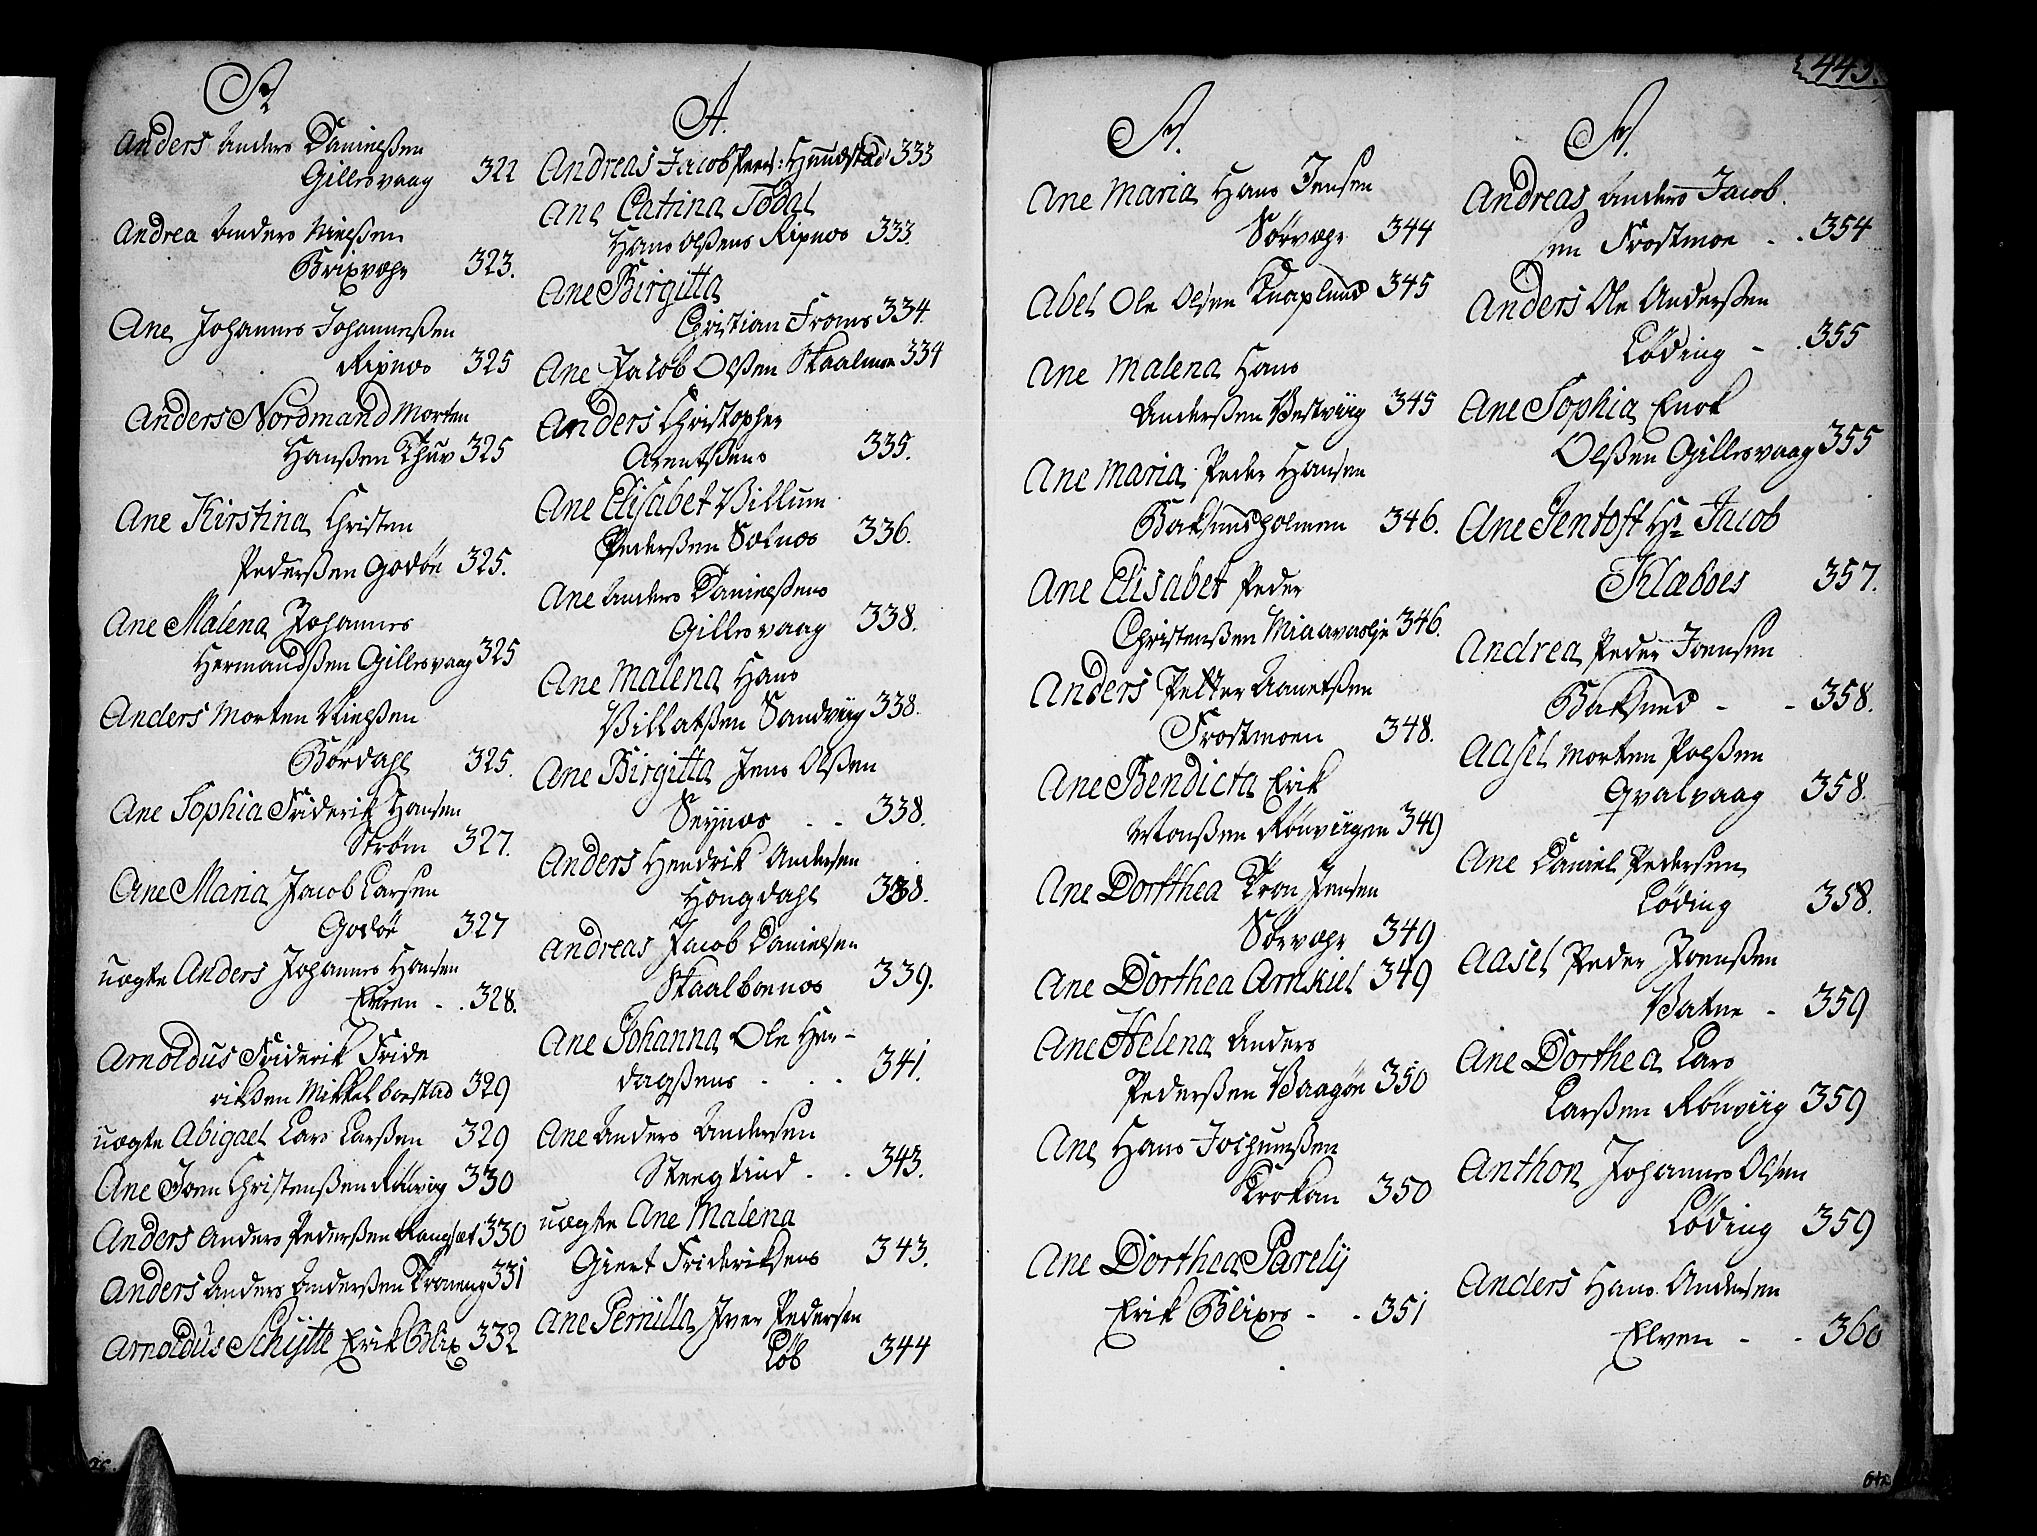 A
Anders Anders Danielßen
Gillesvaag 322
Andrea Anders Nielßen
Brixvaገr 323.
Ane Johannes Johanneßen
Ripnes 325
Anders Nordmand Morten
Hanßen Thuv 325
Ane Kirstina Christen
Pederßen Godøe 325.
Ane Malena Johannes
Hermandßen Gillesvaag 325
Anders Morten Nielßen
Børdahl 325.
Ane Sophia Friderik Hansen
Strøm 327.
Ane Maria Jacob Larsen
Godøe 327
uægte Anders Johannes Hansen
Elven - . 328.
Arnoldus Friderik Fride
rikßen Mikkelboestad 329
uægte Abigael Lars Larßen 329
Ane Joen Christenßen Rønvig 330
Anders Anders Pederßen 330
Anders Anders Anderßen 331
Arnoldus Schijtte Erik Blix 332
A.
Andreas Jacob Peers: Hundstad 333
Ane Catrina Todal
Hans Olßens Ripnes 333.
Ane Birgitta
Christian Froms 334.
Ane Jacob Olßen Skaalmoe 334
Anders Christopher
Arentßens 335.
Ane Elisabet Villum
Pederßen Solnes 336.
Ane Anders Danielßens
Gillesvaag 338.
Ane Malena Hans
Villatßen Sandviig 338.
Ane Birgitta Jens Olßen
Seynes . . 338.
Anders Hendrik Andersen
Hougdahl 338.
Andreas Jacob Danielsen
Skaalboenes 339.
Ane Johanna Ole Hen-
dagßens . . . 341.
Ane Anders Andersen
Steeglind . . 343.
uægte Ane Malena
Giert Frideriksens 343.
Ane Pernilla Iver Pedersen
Løb 344
443.
A.
Ane Maria Hans Jensen
Sørvær 344
Abel Ole Olsen Knaplund 345
Ane Malena Hans
Anderßen Vestviig 345
Ane Maria Peder Hansen
Baksundholmen 346.
Ane Elisabet Peder
Christenßen Miaavaslie 346.
Anders Petter Aanetßen
Frostmoen 348.
Ane Bendicta Erik
Monßen Rønviigen 349
Ane Dorthea Tron Jensen
Sørvær 349
Ane Dorthea Arnkiel 349
Ane Helena Anders
Pederßen Vaagøe 350
Ane Hans Jochumßen
Krokan 350
Ane Dorthea Parelij
Erik Blixes - . 351
A.
Andreas Anders Jacob.
sen Frostmoe . . 354
Anders Ole Anderßen
Løding - . 355
Ane Sophia Enok
Olßen Gillesvaag 355
Ane Jentoft Hr Jacob
Klæboes 357.
Andrea Peder Joensen
Baksund - - 358.
Aasel Morten Polßen
Qvalvaag 358.
Ane Daniel Pedersen
Løding 358.
Aasel Peder Joenßen
Vatne - 359
Ane Dorthea Lars
Larßen Rønviig 359
Anthon Johannes Olsen
Løding 359
Anders Hans Andersen
Elven - - 360